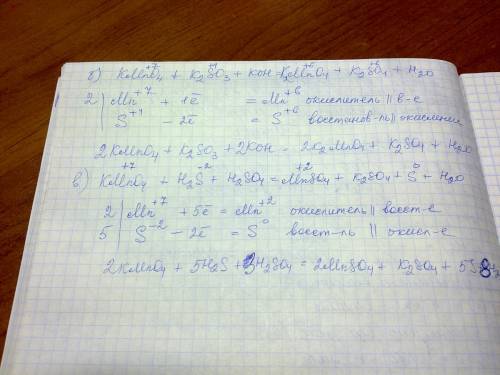 б) KMnO₄⁺⁷ + K₂SO₃⁺⁴ + KOH = K₂MnO₄⁺⁶ + K₂SO₄⁺⁶ + H₂O
2 | Mn⁺⁷ + 1ē = Mn⁺⁶ окислитель || в-е
S⁺⁴ - 2ē = S⁺⁶ восстанов-ль || окисление
2KMnO₄ + K₂SO₃ + 2KOH = 2K₂MnO₄ + K₂SO₄ + H₂O
в) KMnO₄⁺⁷ + H₂S⁻² + H₂SO₄ = MnSO₄⁺² + K₂SO₄ + S⁰ + H₂O
2 | Mn⁺⁷ + 5ē = Mn⁺² окислитель || восст-е
5 | S⁻² - 2ē = S⁰ восст-ль || окисл-е
2KMnO₄ + 5H₂S + 3H₂SO₄ = 2MnSO₄ + K₂SO₄ + 5S 8H₂